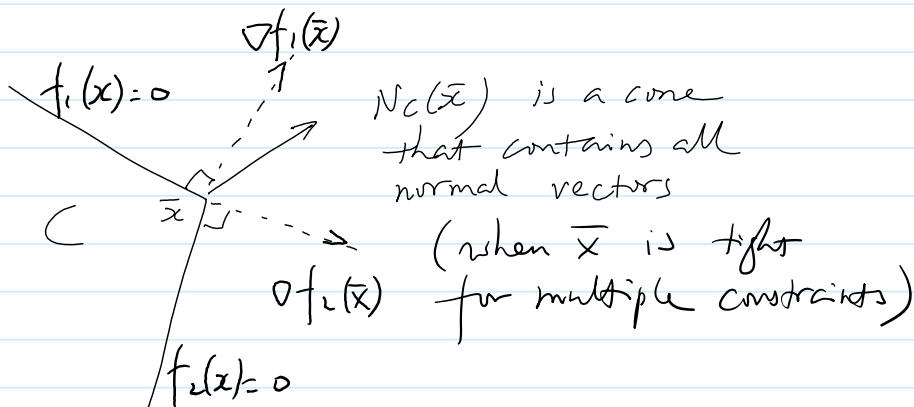 ∇f₁(x̄)
f₁(x)=0
N_C(x̄) is a cone
that contains all
normal vectors
C
x̄
(when x̄ is tight
for multiple constraints)
∇f₂(x̄)
f₂(x)=0